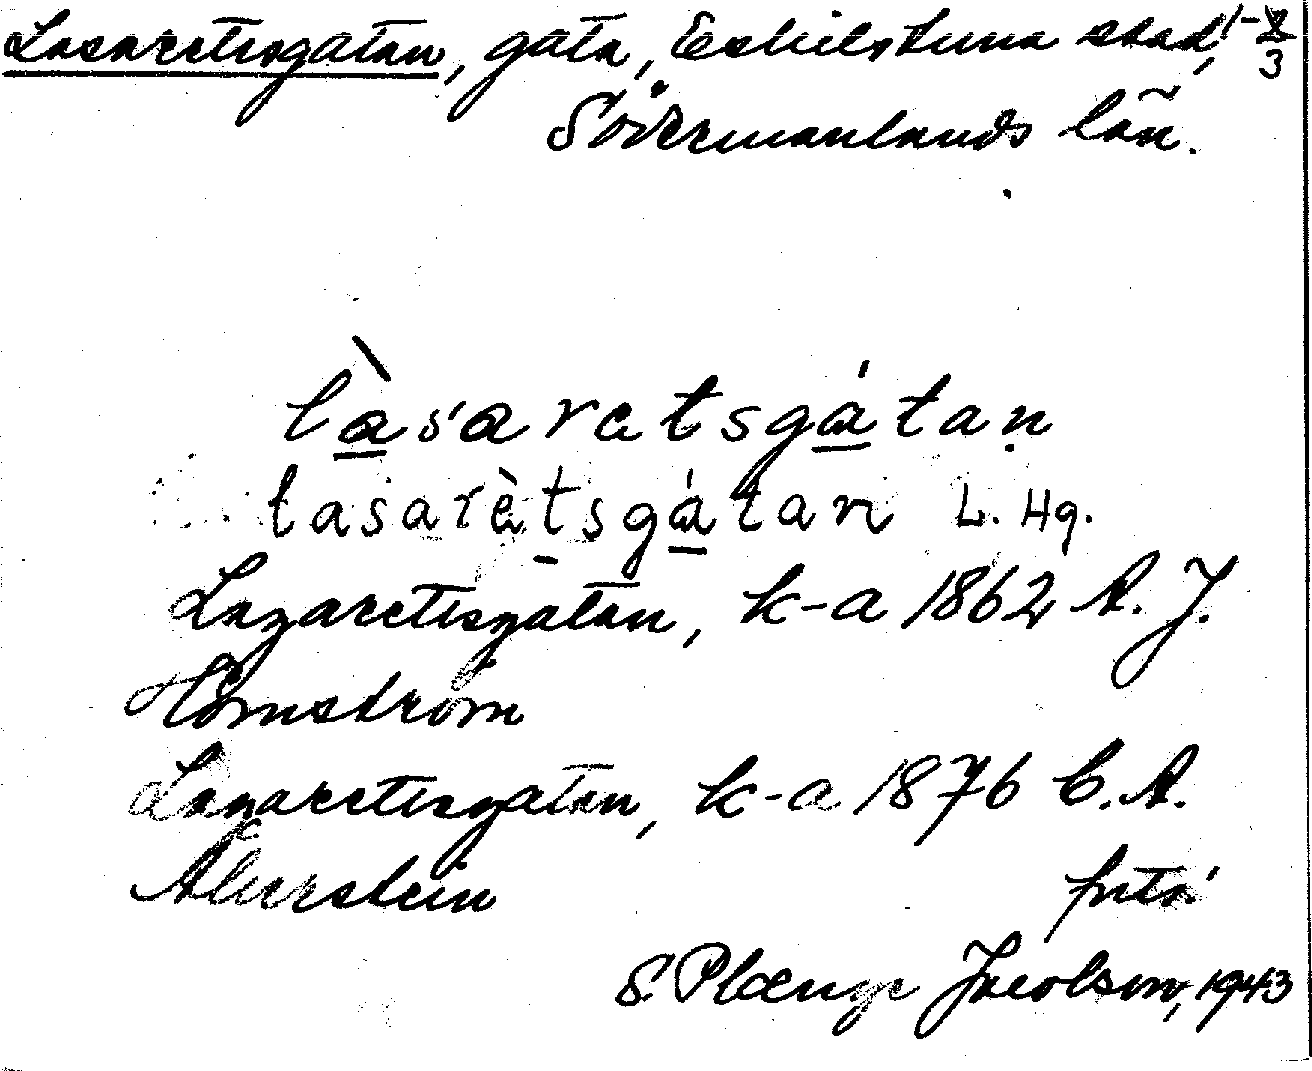 Lasarettsgatan, gata, Eskilstuna stad, 1-2/3
Södermanlands län.
làsaretsgátaṇ
lasarètsgátan L. Hg.
Lazarettsgatan, k-a 1862 A. J.
Törnström
Lazarettsgatan, k-a 1876 C. A.
forts.
S. Plænge Jacobson, 1943